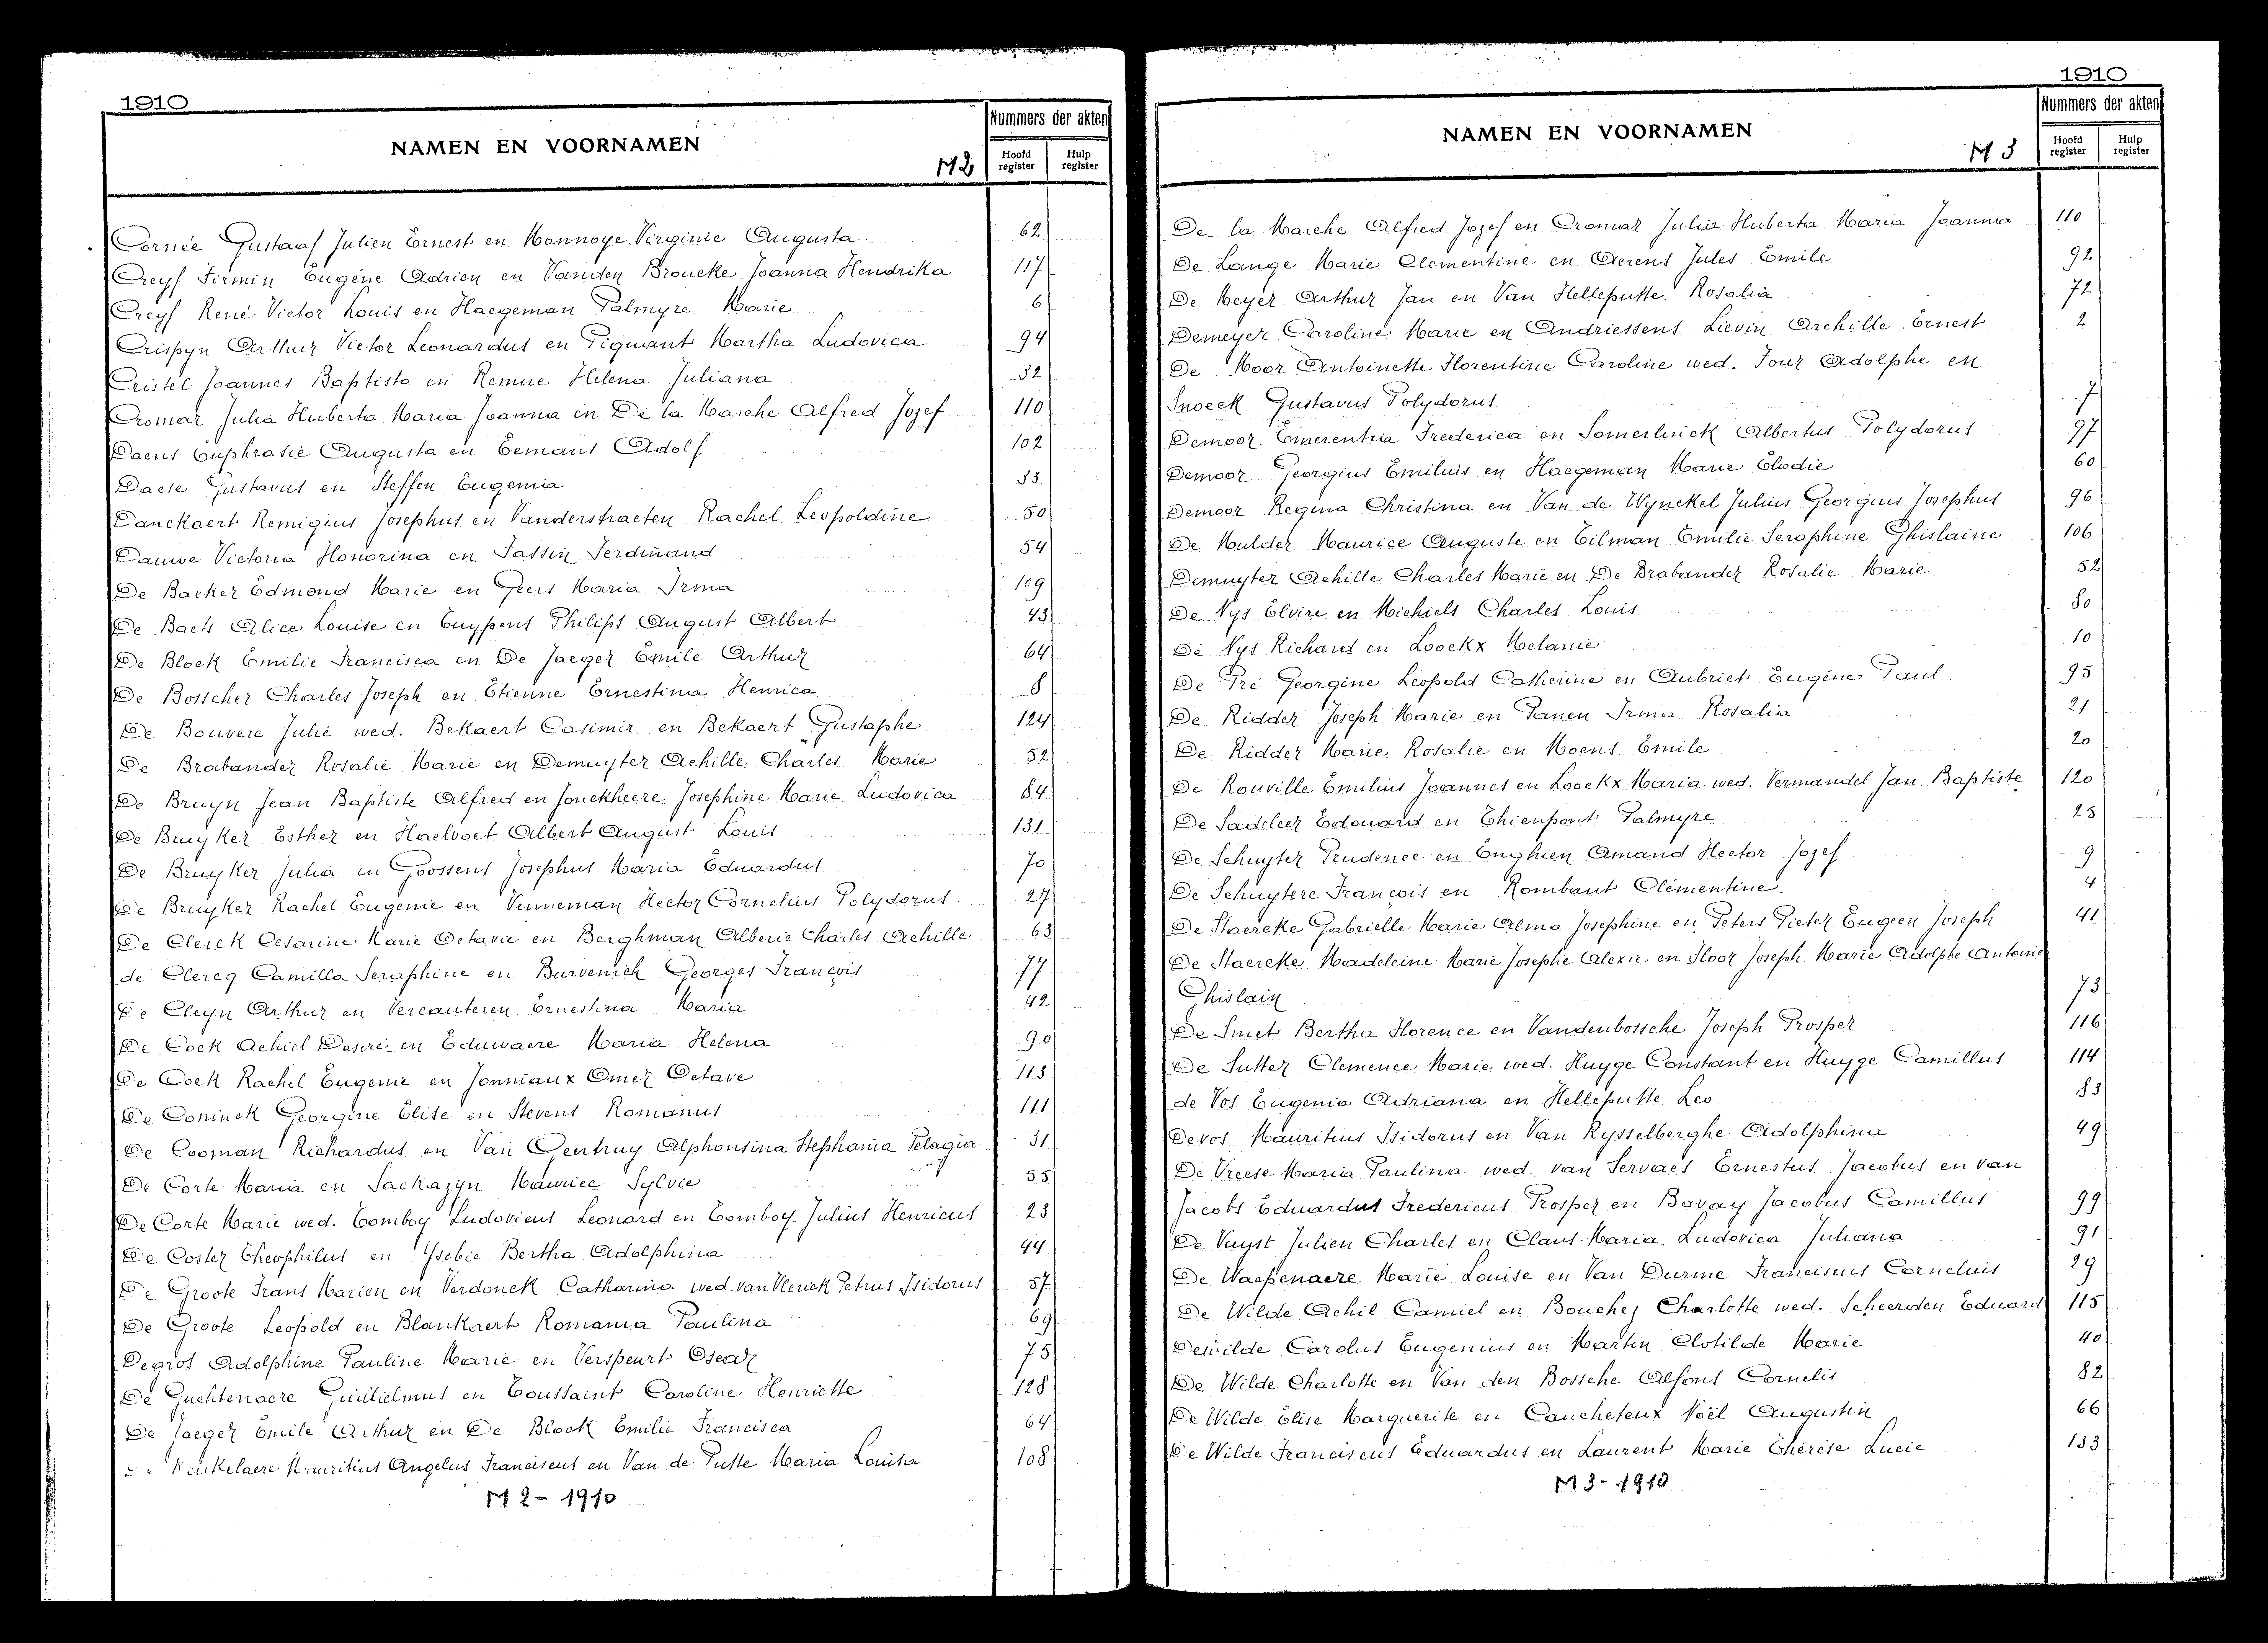 1910
NAMEN EN VOORNAMEN
M2
Nummers der akten
Hoofd register
Hulp register
Cornée Gustaaf Julien Ernest en Monnoye Virginie Augusta 62
Creyf Firmin Eugène Adrien en Vanden Broucke Joanna Hendrika 117
Creyf René Victor Louis en Haegeman Palmyre Marie 6
Crispyn Arthur Victor Leonardus en Piquant Martha Ludovica 94
Cristel Joannes Baptista en Remue Helena Juliana 32
Cromar Julia Huberta Maria Joanna en De la Marche Alfred Jozef 110
Daens Euphrasie Augusta en Eemans Adolf 102
Daese Gustavus en Steffen Eugenia 33
Danckaert Remigius Josephus en Vanderstraeten Rachel Leopoldine 50
Dauwe Victoria Honorina en Fassin Ferdinand 54
De Backer Edmond Marie en Geers Maria Irma 109
De Baets Alice Louise en Cuypens Philips August Albert 43
De Block Emilie Francisca en De Jaeger Emile Arthur 64
De Bosscher Charles Joseph en Etienne Ernestina Henrica 8
De Bouvere Julie wed. Bekaert Casimir en Bekaert Gustaphe 124
De Brabander Rosalie Marie en Demuyter Achille Charles Marie 52
De Bruyn Jean Baptiste Alfred en Jonckheere Josephine Marie Ludovica 84
De Bruyker Esther en Haelvoet Albert August Louis 131
De Bruyker Julia en Goossens Josephus Maria Eduardus 70
De Bruyker Rachel Eugenie en Venneman Hector Cornelius Polydorus 27
De Clerck Cesarine Marie Octavie en Berghman Alberic Charles Achille 63
de Clercq Camilla Seraphine en Burvenich Georges François 77
De Cleyn Arthur en Vercauteren Ernestina Maria 42
De Cock Achiel Desiré en Eduwaere Maria Helena 90
De Cock Rachel Eugenie en Jonniaux Omer Octave 113
De Coninck Georgine Elise en Stevens Romanus 111
De Cooman Richardus en Van Gentruy Alphonsina Stephania Pelagia 31
De Corte Maria en Sackazyn Maurice Sylvie 55
De Corte Marie wed. Comboy Ludovicus Leonard en Comboy Julius Henricus 23
De Coster Theophilus en Ysebie Bertha Adolphina 44
De Groote Frans Marien en Verdonck Catharina wed. van Vlerick Petrus Isidorus 57
De Groote Leopold en Blankaert Romania Paulina 69
Degros Adolphine Pauline Marie en Verspeurt Oscar 75
De Guchtenaere Guilielmus en Toussaint Caroline Henriette 128
De Jaeger Emile Arthur en De Block Emilie Francisca 64
Mauritius Angelus Franciscus en Van de Putte Maria Louisa 108
M 2 - 1910
1910
NAMEN EN VOORNAMEN
M 3
Nummers der akten
Hoofd register
Hulp register
De la Marche Alfred Jozef en Cromar Julia Huberta Maria Joanna 110
De Lange Marie Clementine en Aerens Jules Emile 92
De Meyer Arthur Jan en Van Helleputte Rosalia 72
Demeyer Caroline Marie en Andriessens Lievin Archille Ernest 2
De Moor Antoinette Florentine Caroline wed. Four Adolphe en
Snoeck Gustavus Polydorus 7
Demoor Emerentia Frederica en Somerlinck Albertus Polydorus 97
Demoor Georgius Emiluis en Haegeman Marie Elodie 60
Demoor Regina Christina en Van de Wynckel Julius Georgius Josephus 96
De Mulder Maurice Auguste en Tilman Emilie Seraphine Ghislaine 106
Demuyter Achille Charles Marie en De Brabander Rosalie Marie 52
De Nys Elvire en Michiels Charles Louis 80
De Nys Richard en Loockx Melanie 10
De Pré Georgine Leopold Catherine en Aubriet Eugène Paul 95
De Ridder Joseph Marie en Panen Irma Rosalia 21
De Ridder Marie Rosalie en Moens Emile 20
De Rouville Emilius Joannes en Loockx Maria wed. Vermandel Jan Baptiste 120
De Sadeleer Edouard en Thienpont Palmyre 25
De Schuyter Prudence en Enghien Amand Hector Jozef 9
De Schuytere François en Rombaut Clémentine 4
De Staercke Gabrielle Marie Alma Josephine en Peters Pieter Eugeen Joseph 41
De Staercke Madeleine Marie Josephe Alexie en Floor Joseph Marie Adolphe Antoine
Ghislain 73
De Smet Bertha Florence en Vandenbossche Joseph Prosper 116
De Sutter Clemence Marie wed. Huyge Constant en Huyge Camillus 114
de Vos Eugenia Adriana en Helleputte Leo 83
Devos Mauritius Isidorus en Van Rysselberghe Adolphina 49
De Vreese Maria Paulina wed. van Servaes Ernestus Jacobus en van
Jacobs Eduardus Fredericus Prosper en Bavay Jacobus Camillus 99
De Vuyst Julien Charles en Claus Maria Ludovica Juliana 91
De Waepenaere Marie Louise en Van Durme Francisus Corneluis 29
De Wilde Achil Camiel en Bouchez Charlotte wed. Scheerden Eduard 115
Dewilde Carolus Eugenius en Martin Clotilde Marie 40
De Wilde Charlotte en Van den Bossche Alfons Cornelis 82
De Wilde Elise Marguerite en Caucheteux Noël Augustin 66
De Wilde Franciscus Eduardus en Laurent Marie Thérèse Lucie 133
M 3 - 1910